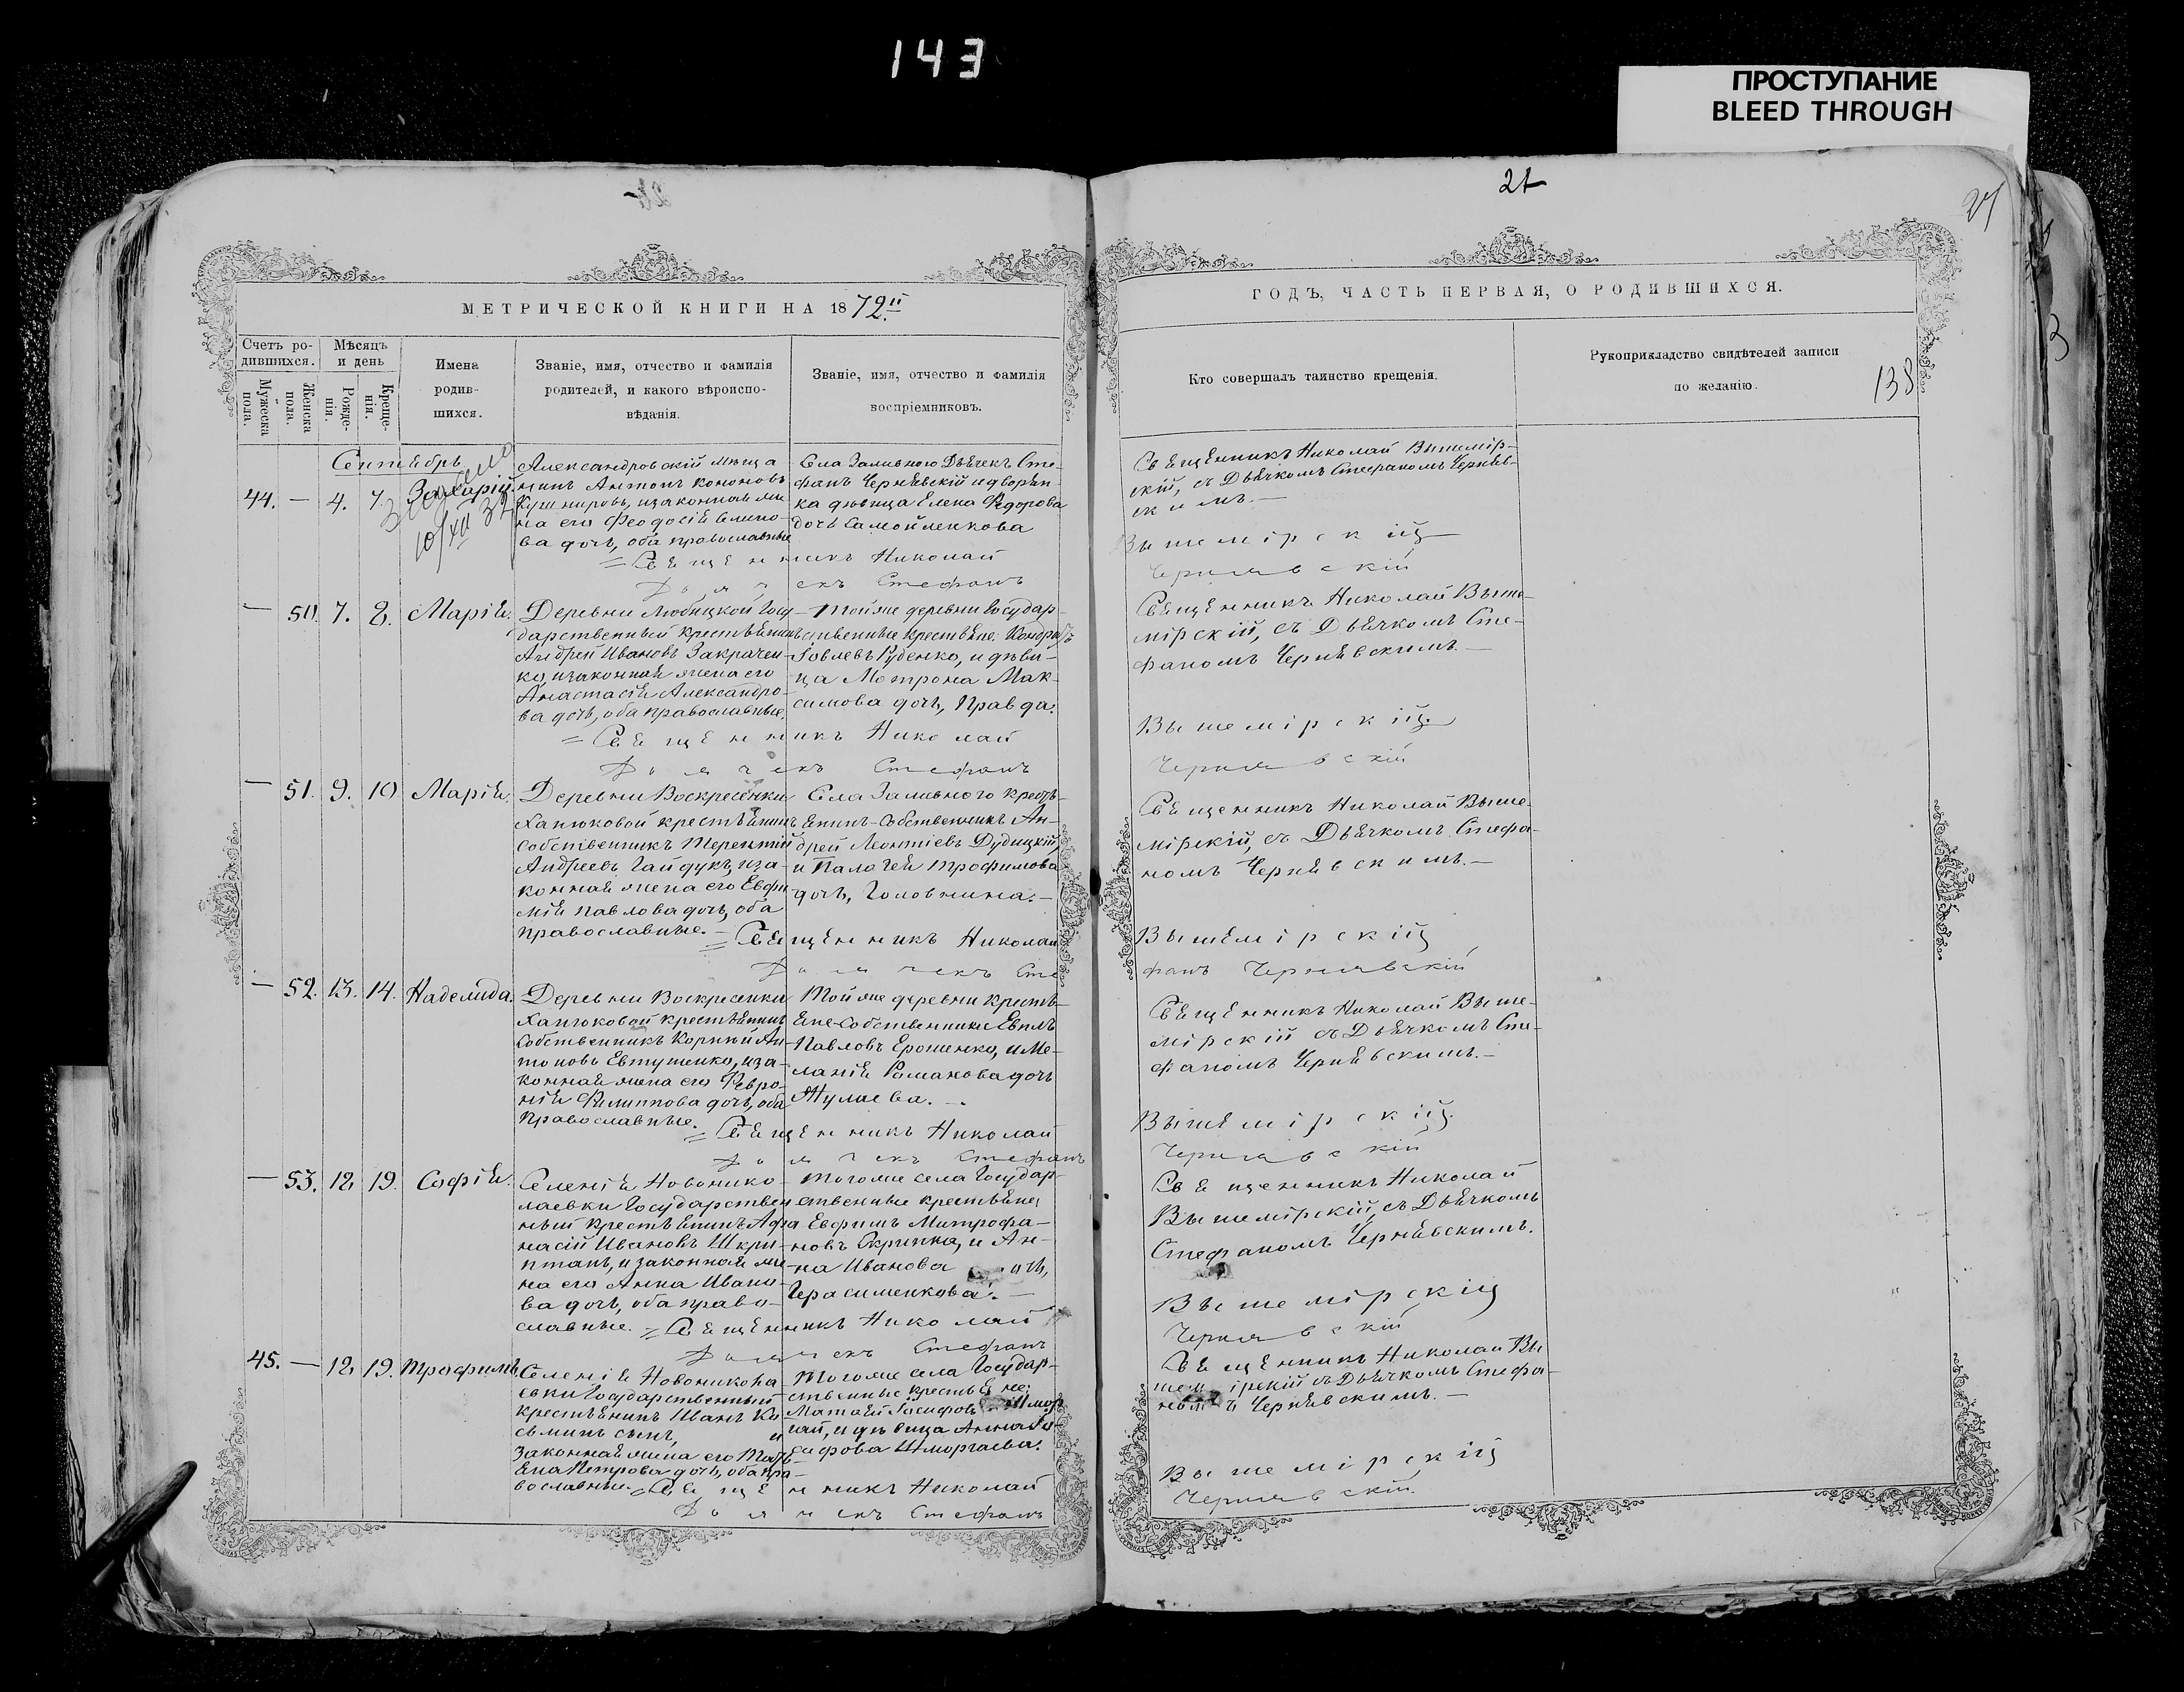 143
ПРОСТУПАНИЕ
BLEED THROUGH
21
27
МЕТРИЧЕСКОЙ КНИГИ НА 1872й
Счетъ ро-
дившихся.
Мужеска
пола.
Женска
пола.
Мѣсяцъ
и день
Рожде-
нія.
Креще-
нія.
Имена
родив-
шихся.
Званіе, имя, отчество и фамилія
родителей, и какого вѣроиспо-
вѣданія.
Званіе, имя, отчество и фамилія
воспріемниковъ.
ГОДЪ, ЧАСТЬ ПЕРВАЯ, О РОДИВШИХСЯ.
Кто совершалъ таинство крещенія.
Рукоприкладство свидѣтелей записи
по желанію.
138
Сентябрь
44. — 4. 7. Захарій.
Александровскій мѣща
нинъ Антонъ Кононовъ
Кушнировъ, изаконная же
на его Феодосія
ва дочь, оба православные
Села Заливного Дьячекъ Сте-
фанъ Чернявскій идворян-
ка дѣвица Елена Федорова
дочь Самойленкова
Священникъ Николай Вышемір-
скій, съ Дьячкомъ Стефаномъ Черняв-
скимъ.—
= Священникъ Николай Вышемірскій
Дьячекъ Стефанъ Чернявскій
— 50. 7. 8. Марія.
Деревни Любицкой Госу-
дарственный крестьянинъ
Андрей Ивановъ Закрачен-
ко, изаконная жена его
Анастасія Александро-
ва дочь, оба православные.
Тойже деревни Государ-
ственные крестьяне: Кондратъ
Іовлевъ Руденко, и дѣви-
ца Мотрона Мак-
симова дочь, Правда.
Священникъ Николай Выше-
мірскій, съ Дьячкомъ Сте-
фаномъ Чернявскимъ.—
= Священникъ Николай Вышемірскій
Дьячекъ Стефанъ Чернявскій
— 51. 9. 10 Марія.
Деревни Воскресенки
Ханюковой крестьянинъ
Собственникъ Терентій
Андреевъ Гайдукъ, иза-
конная жена его Евфи-
мія Павлова дочь, оба
православные.—
Села Заливного кресть-
янинъ-Собственникъ Ан-
дрей Леонтіевъ Дудицкій,
и Палагея Трофимова
дочь, Головнина.—
Священникъ Николай Выше-
мірскій, съ Дьячкомъ Стефа-
номъ Чернявскимъ.—
= Священникъ Николай Вышемірскій
Дьячекъ Стефанъ Чернявскій
— 52. 13. 14. Надежда.
Деревни Воскресенки
Ханюковой крестьянинъ
Собственникъ Корній Ан-
тоновъ Евтушенко, иза-
конная жена его Февро-
нія Филиппова дочь, оба
Православные.
Тойже деревни кресть-
яне-Собственники Евтихъ
Павловъ Ерошенко, и Ме-
ланія Романова дочь
Жулаева.—
Священникъ Николай Выше-
мірскій съ Дьячкомъ Сте-
фаномъ Чернявскимъ.—
= Священникъ Николай Вышемірскій.
Дьячекъ Стефанъ Чернявскій
— 53. 12 19. Софія.
Селенія Новонико-
лаевки Государствен
ный крестьянинъ Афа
насій Ивановъ Шкри-
птанъ, изаконная же-
на его Анна Ивано-
ва дочь, оба право-
славные.
Тогоже села Государ-
ственные крестьяне,
Евфимъ Митрофа-
новъ Скрипка, и Ан-
на Иванова дочь,
Герасименкова.—
Священникъ Николай
Вышемірскій, съ Дьячкомъ
Стефаномъ Чернявскимъ.
= Священникъ Николай Вышемірскій
Дьячекъ Стефанъ Чернявскій
45. — 12 19. Трофимъ.
Селенія Новоникола
евки Государственный
крестьянинъ Иванъ Ко
сьминъ сынъ, и
законная жена его Тать-
яна Петрова дочь, оба пра-
вославные.
Тогоже села Государ-
ственные крестьяне:
Матвей Іосифовъ Шмор
гай, и дѣвица Анна Іо-
сифова Шморгаева.
Священникъ Николай Вы
шемірскій съ Дьячкомъ Стефа-
номъ Чернявскимъ.—
= Священникъ Николай Вышемірскій
Дьячекъ Стефанъ Чернявскій